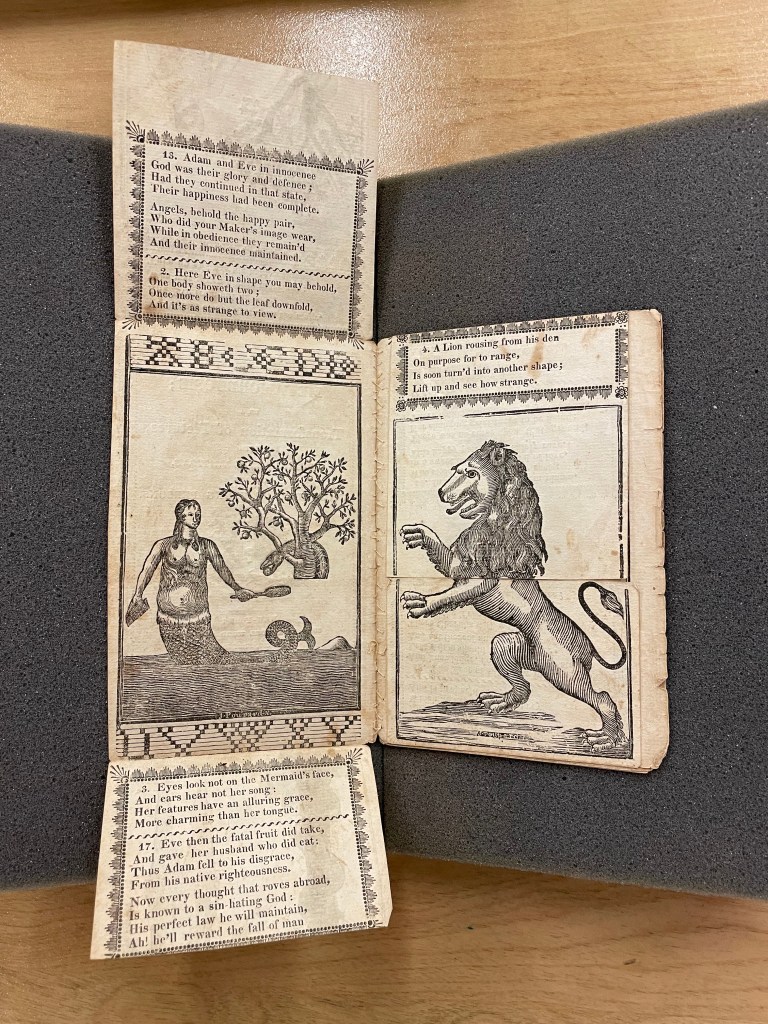 13. Adam and Eve in innocence
God was their glory and defence;
Had they continued in that state,
Their happiness had been complete.
Angels, behold the happy pair,
Who did your Maker's image wear,
While in obedience they remain'd
And their innocence maintained.
2. Here Eve in shape you may behold,
One body showeth two;
Once more do but the leaf downfold,
And it's as strange to view.
3. Eyes look not on the Mermaid's face,
And ears hear not her song:
Her features have an alluring grace,
More charming than her tongue.
17. Eve then the fatal fruit did take,
And gave her husband who did eat:
Thus Adam fell to his disgrace,
From his native righteousness.
Now every thought that roves abroad,
Is known to a sin-hating God:
His perfect law he will maintain,
Ah! he'll reward the fall of man
4. A Lion rousing from his den
On purpose for to range,
Is soon turn'd into another shape;
Lift up and see how strange.